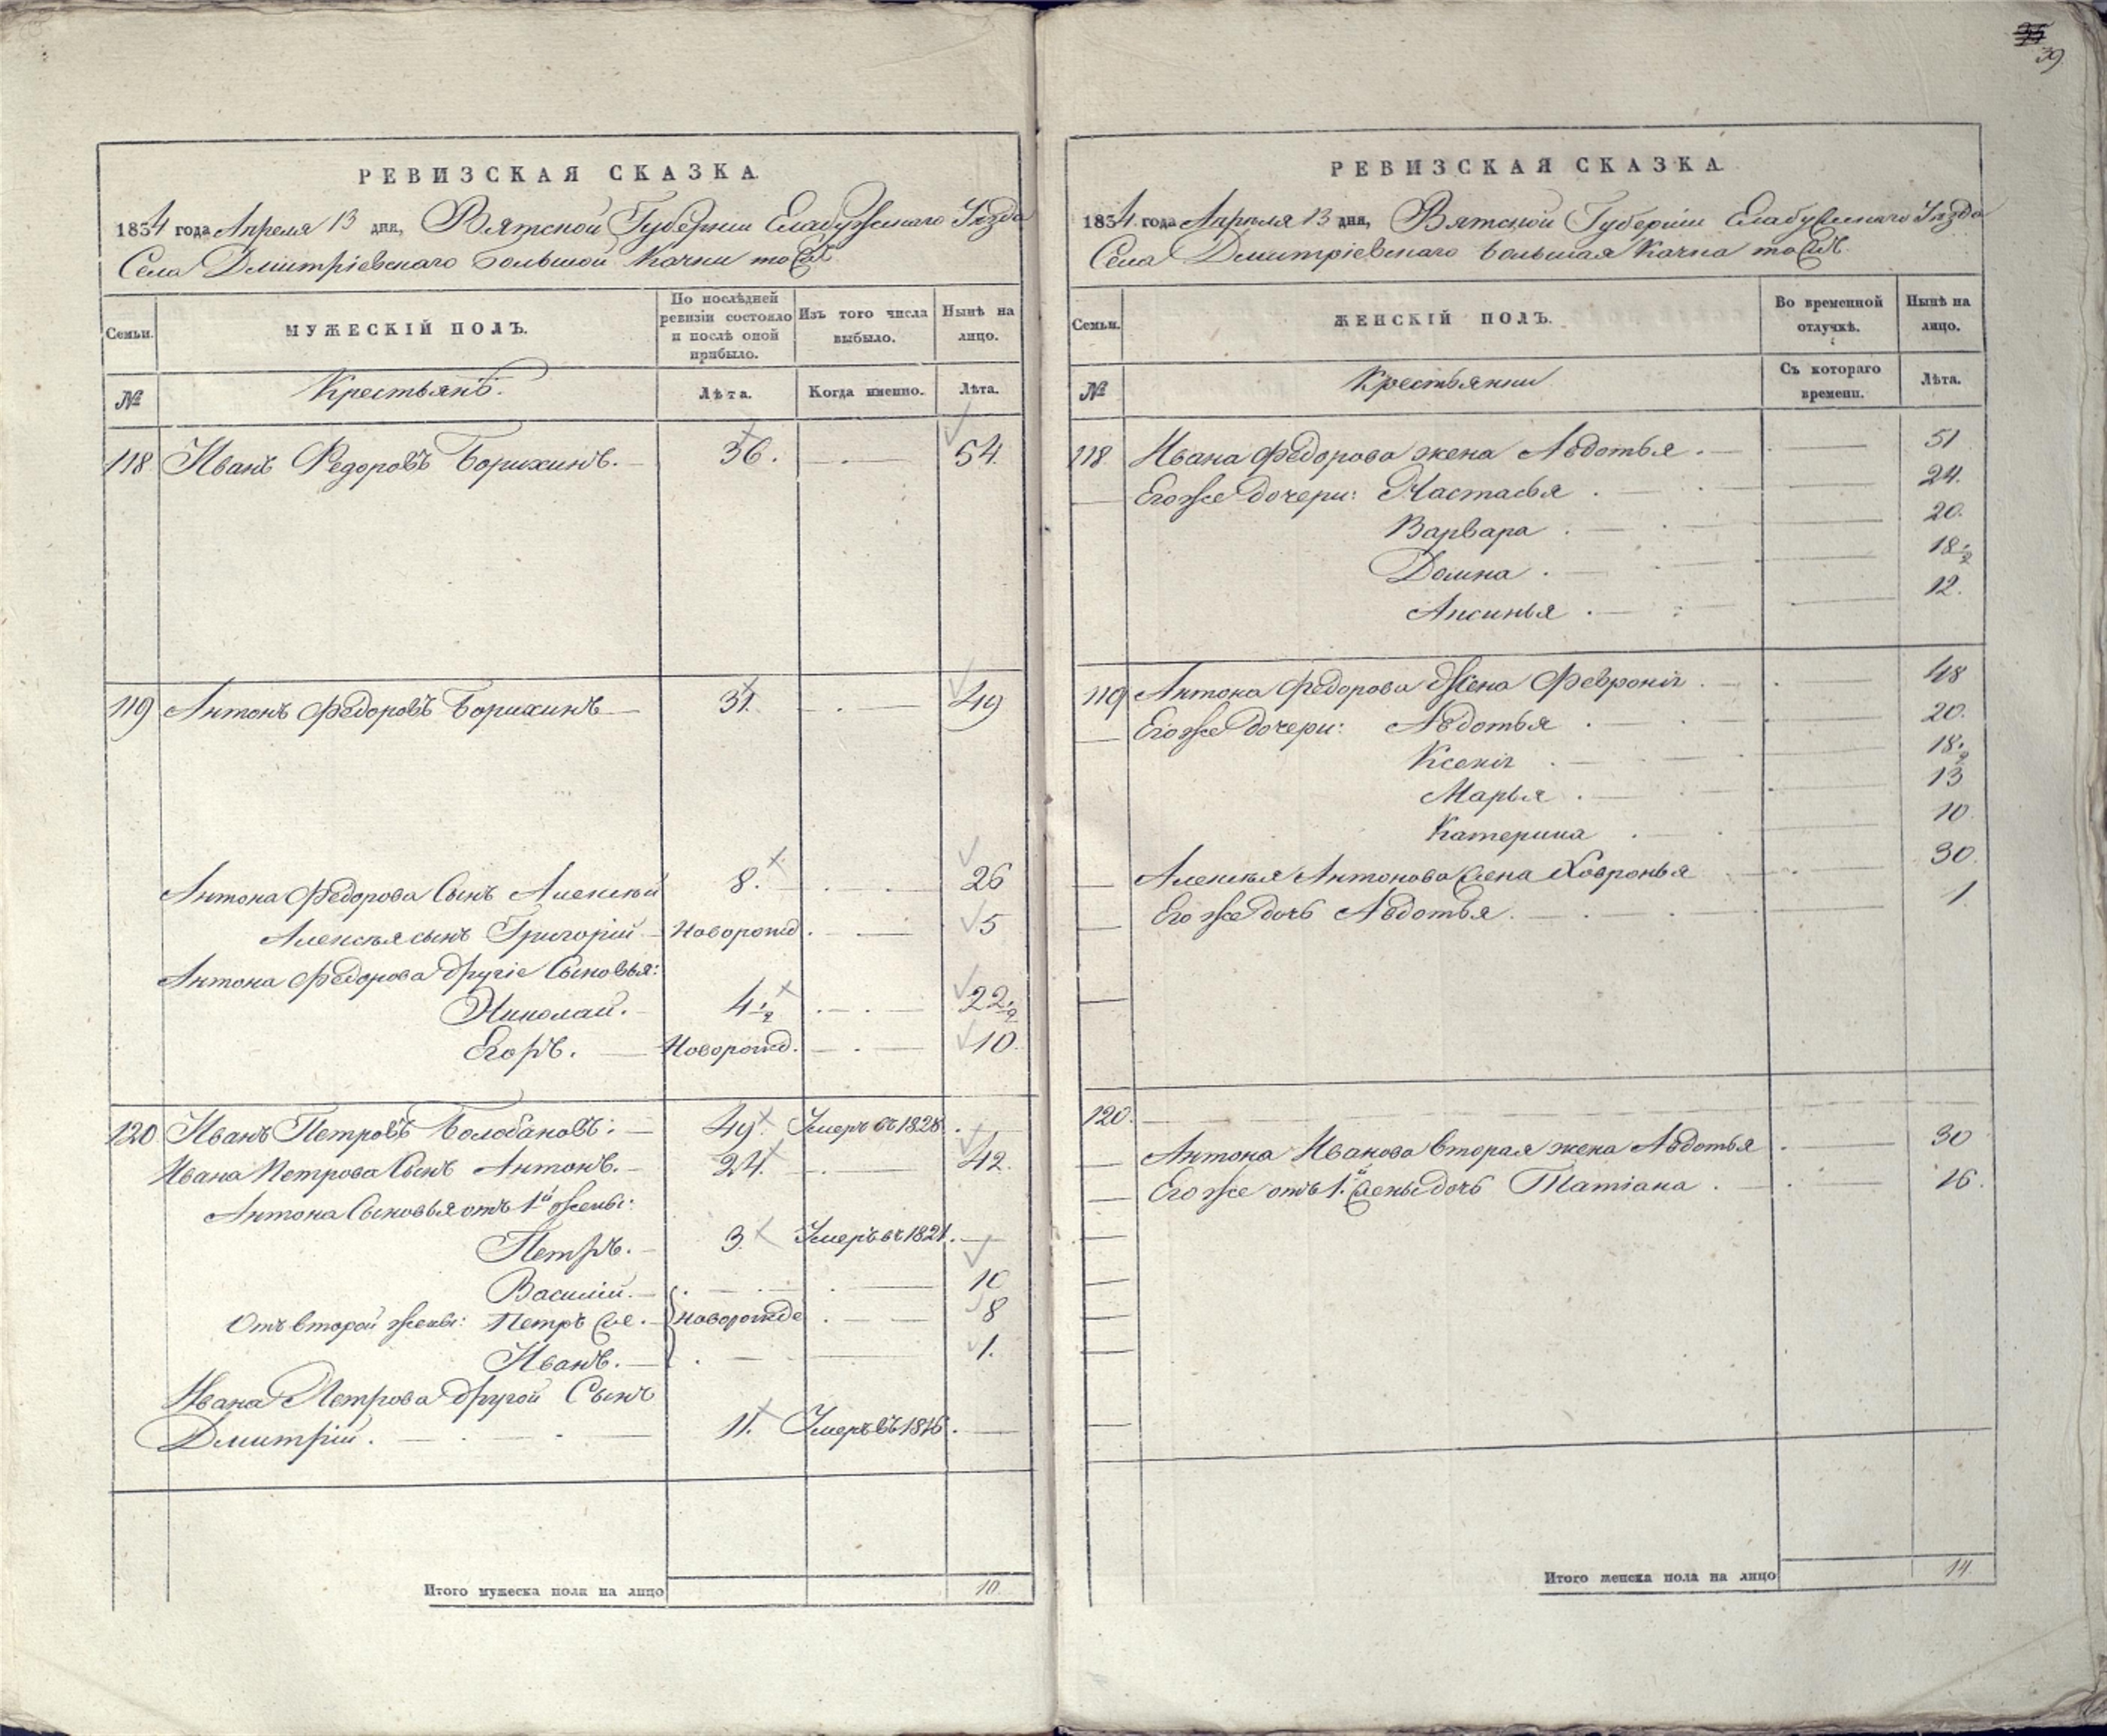 39
РЕВИЗСКАЯ СКАЗКА.
1834 года Апреля 13 дня, Вятской Губернии Елабужскаго Уѣзда
Села Дмитріевскаго Большой Качки тожъ
Семьи.
МУЖЕСКІЙ ПОЛЪ.
По послѣдней ревизіи состояло и послѣ оной прибыло.
Изъ того числа выбыло.
Нынѣ на лицо.
№
Крестьянъ.
Лѣта.
Когда именно.
Лѣта.
118 Иванъ Федоровъ Борихинъ. 36. 54.
119 Антонъ Федоровъ Борихинъ 31. 49
Антона Федорова Сынъ Алексѣй 8. 26
Алексѣя сынъ Григорій Новорожд. 5
Антона Федорова другіе Сыновья:
Николай. 4 1/2 22 1/2
Егоръ. Новорожд. 10.
120 Иванъ Петровъ Болобановъ: 49. Умеръ въ 1828.
Ивана Петрова Сынъ Антонъ. 24. 42.
Антона Сыновья отъ 1й жены:
Петръ. 3. Умеръ въ 1821.
Василій. 10
Отъ второй жены: Петръ Новорожде 8
Иванъ. 1.
Ивана Петрова другой Сынъ
Дмитрій. 11. Умеръ въ 1816.
Итого мужеска пола на лицо 10.
РЕВИЗСКАЯ СКАЗКА.
1834 года Апреля 13 дня, Вятской Губерніи Елабужскаго Уѣзда
Села Дмитріевскаго Большая Качка тожъ
Семьи.
ЖЕНСКІЙ ПОЛЪ.
Во временной отлучкѣ.
Нынѣ на лицо.
№
Крестьянки
Съ котораго времени.
Лѣта.
118. Ивана Федорова жена Авдотья. 51
Его же дочери: Настасья. 24.
Варвара. 20.
Домна. 18 1/2
Аксинья. 12.
119 Антона Федорова Жена Февронія. 48
Его же дочери: Авдотья. 20.
Ксенія. 18 1/2
Марья. 13
Катерина. 10
Алексѣя Антонова жена Ховронья 30.
Его же дочь Авдотья. 1.
120.
Антона Иванова вторая жена Авдотья 30
Его же отъ 1.й жены дочь Татіана. 16.
Итого женска пола на лицо 14.